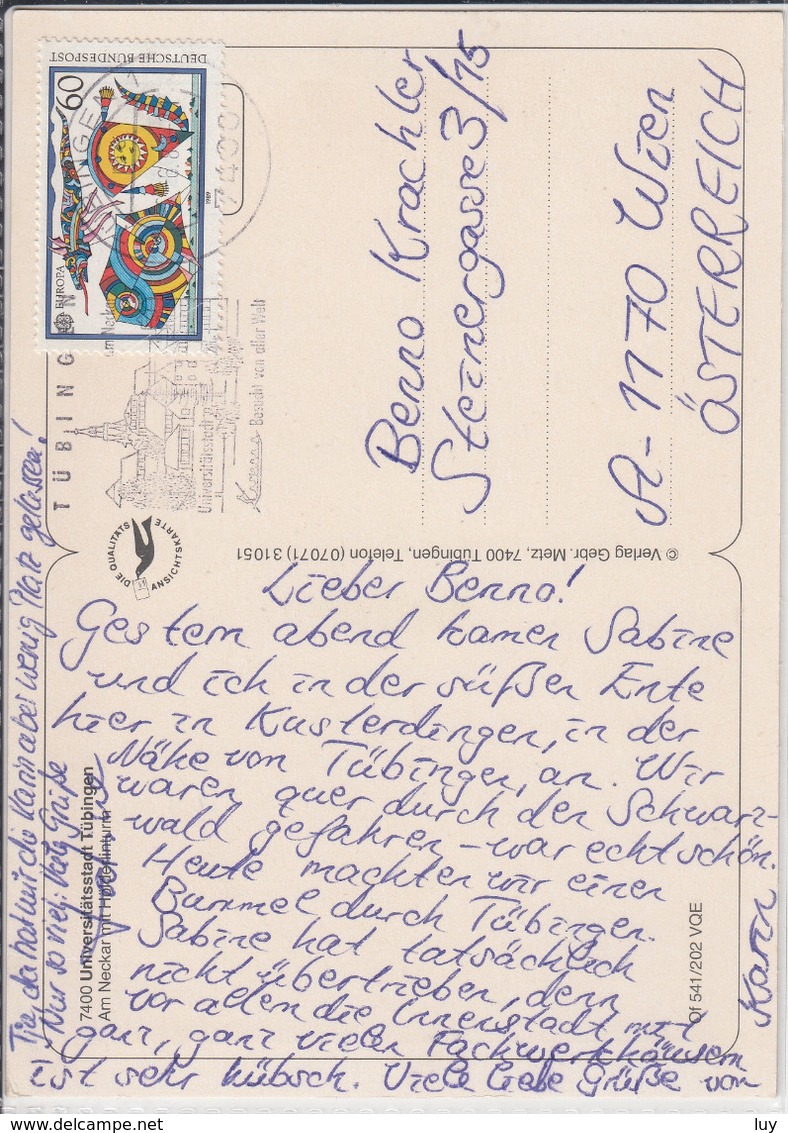 DEUTSCHE BUNDESPOST
60
EUROPA
1989
7400
TÜBINGEN
am Neckar
Universitätsstadt
Besucht von aller Welt
DIE QUALITÄTS
ANSICHTSKARTE
Benno Krachler
Steinergasse 3/15
A-1170 Wien
ÖSTERREICH
© Verlag Gebr. Metz, 7400 Tübingen, Telefon (07071) 31051
Lieber Benno!
Gestern abend kamen Sabine
und ich in der süßen Ente
hier in Kusterdingen, in der
Nähe von Tübingen, an. Wir
waren quer durch den Schwarz-
wald gefahren – war echt schön.
Heute machten wir einen
Bummel durch Tübingen.
Sabine hat tatsächlich
nicht übertrieben, denn
vor allem die Innenstadt mit
ganz, ganz vielen Fachwerkhäusern
ist sehr hübsch. Viele liebe Grüße von
Karin
Tja, da hat mir die Karin aber wenig Platz gelassen!
Nur so viel: Viele Grüße
7400 Universitätsstadt Tübingen
Am Neckar mit Hölderlinturm
Of 541/202 VQE
luy